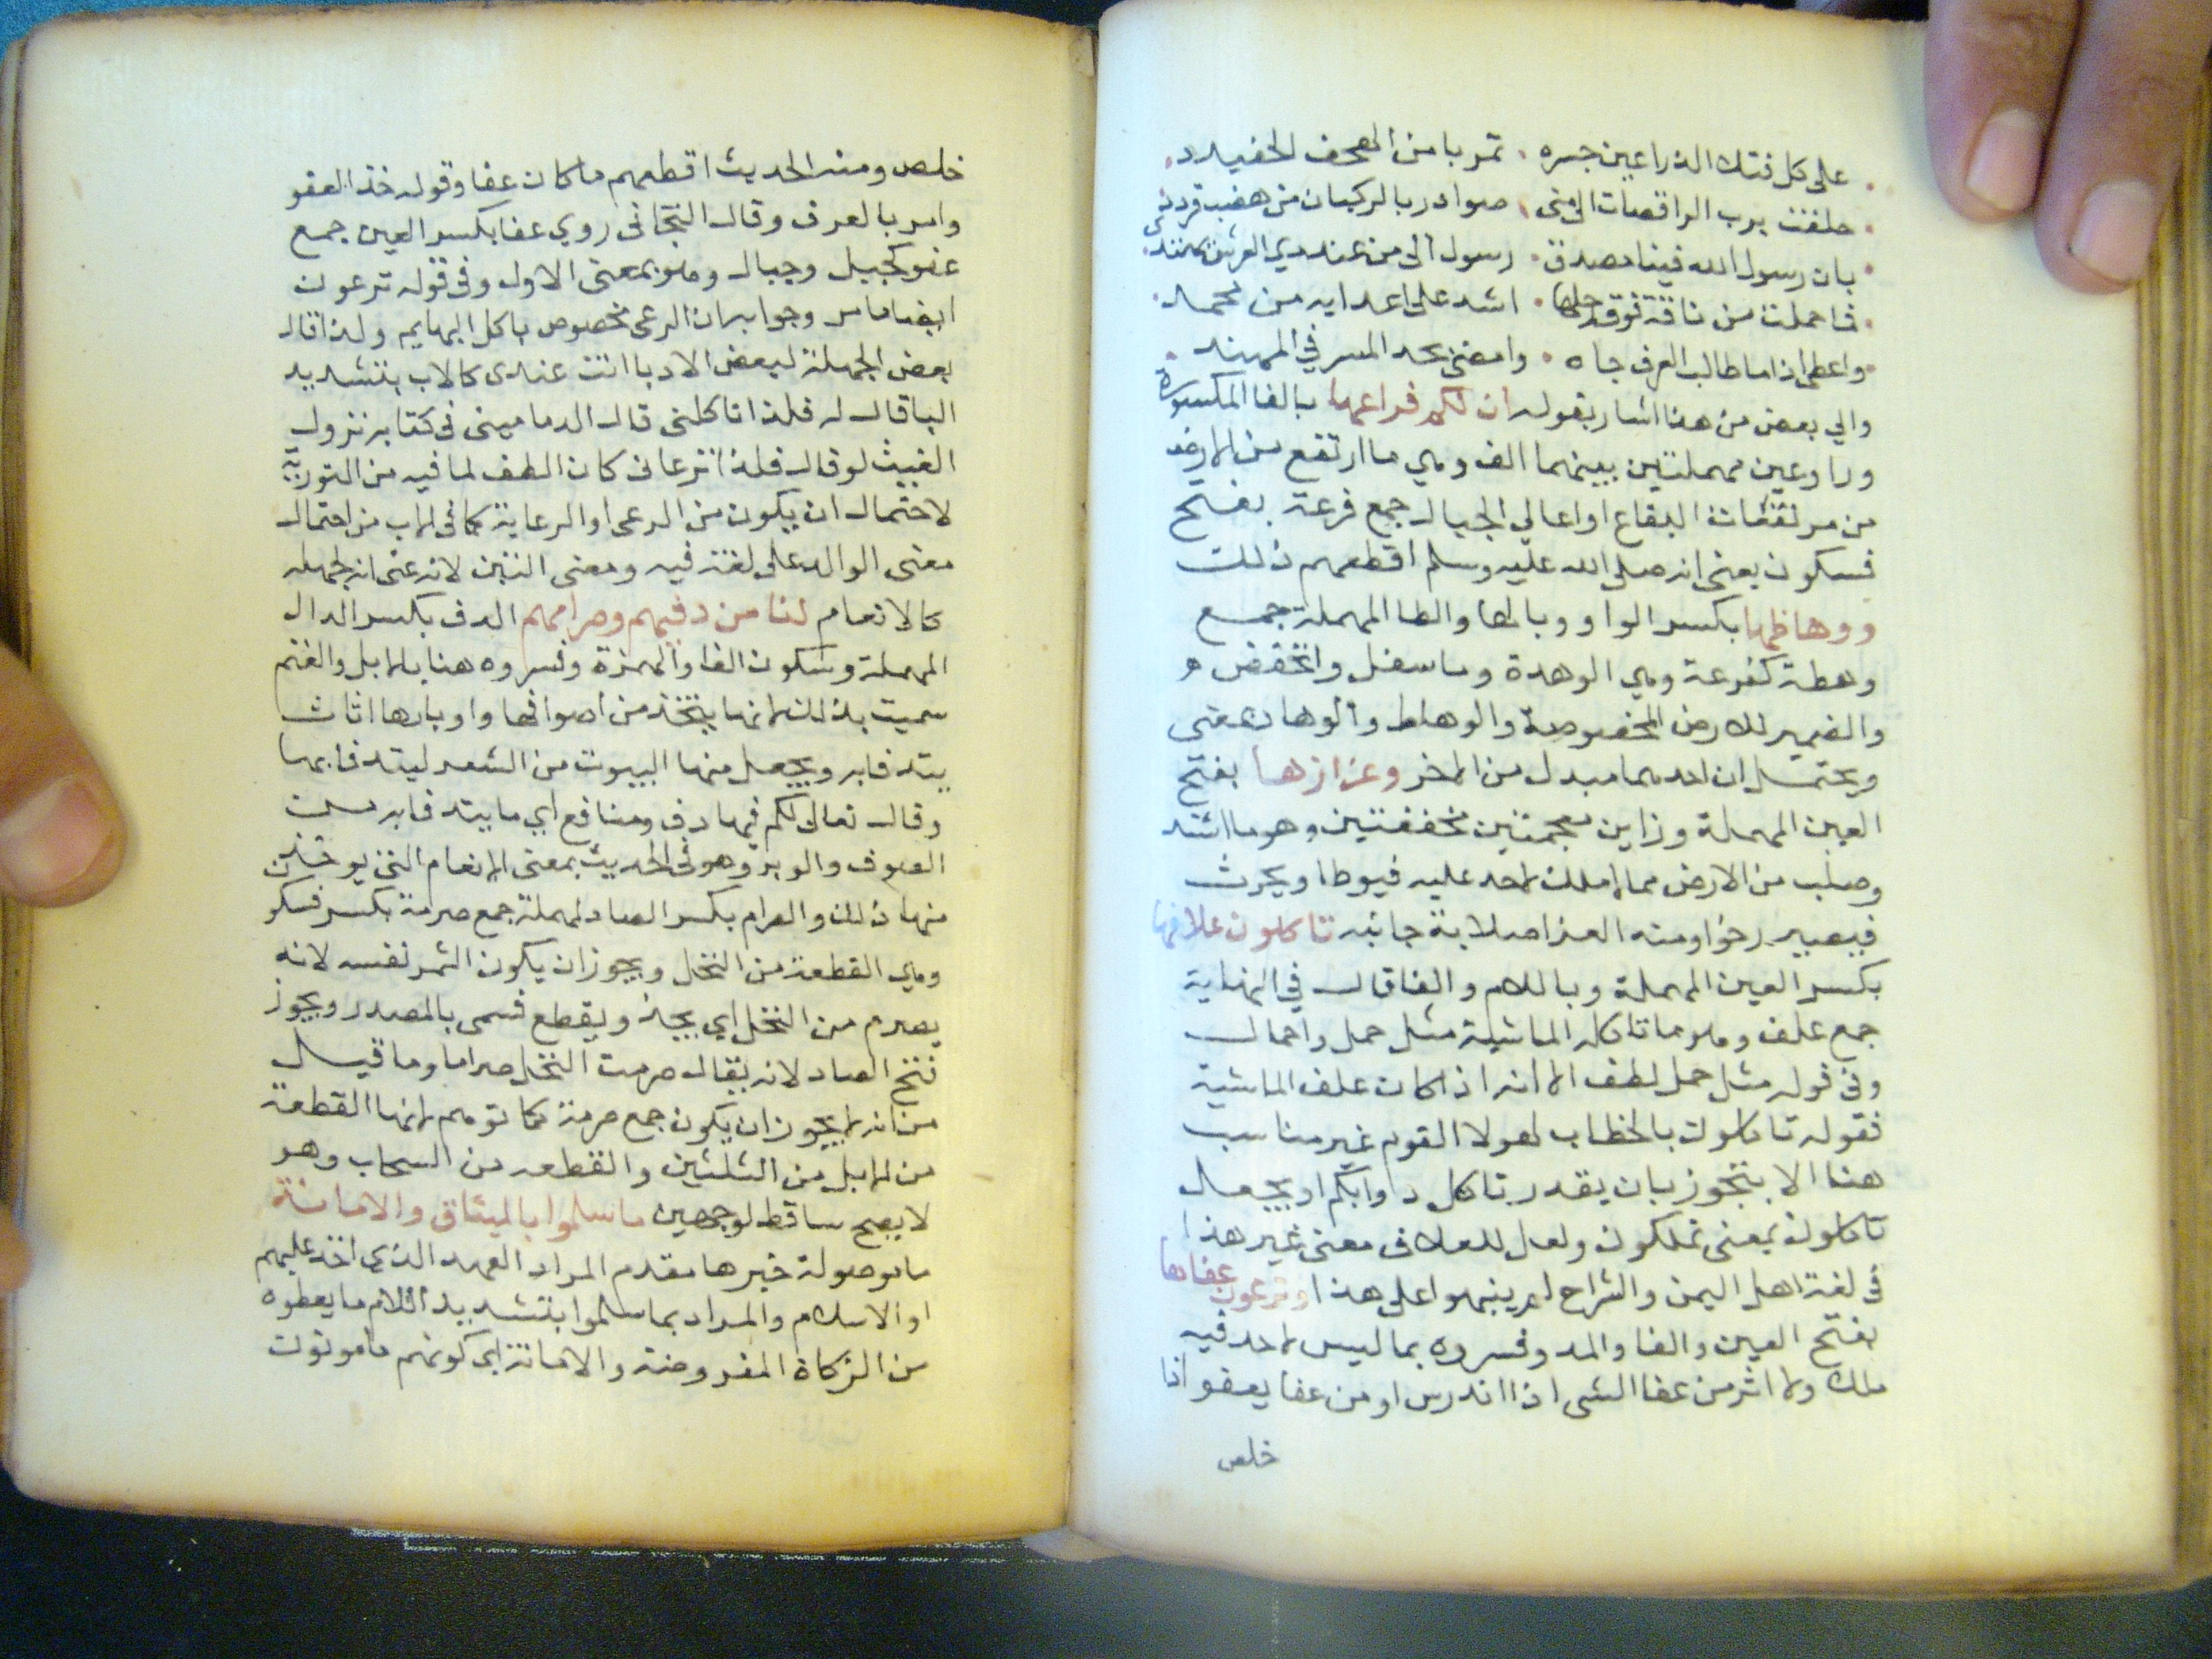 على كل فتك الذراعين جسره . تمر بنا من الهجف الخفيدد .
حلفت برب الراقصات الى منى . صوادر بالركبان من هضب قردد
بان رسول الله فينا مصدق . رسول اتى من عند ذي العرش مهتد .
فما حملت من ناقة فوق رحلها . اشد على اعدايه من محمد .
واعطى اذا ما طالب العرف جاه . وامضى بحد المشرفي المهند .
والي بعض من هذا اشار بقوله ان لكم فراعها بالفا المكسورة
وراوعين مهملتين بينهما الف وهي ما ارتفع من الارض
من مرتفعات البقاع او اعالي الجبال جمع فرعة بفتح
فسكون يعني انه صلى الله عليه وسلم اقطعهم ذلك
ووهاطها بكسر الواو وبالها والطا المهملة جمع
وهطة كفرعة وهي الوهدة وما سفل وانخفض
والضمير للارض المخصوصة والوهاط والوهاد بمعنى
ويحتمل ان احدهما مبدل من الاخر وعزازها بفتح
العين المهملة وزاين معجمتين مخففتين وهو ما اشتد
وصلب من الارض مما لا ملك لاحد عليه فيوطا ويحرث
فيصير رخوا ومنه العزا صلابة جانبه تاكلون علافها
بكسر العين المهملة وباللام والفا قال في النهاية
جمع علف وهو ما تاكله الماشية مثل جمل واجمال
وفي قوله مثل جمل لطف الا انه اذا كان علف الماشية
فقوله تاكلون بالخطاب لهولا القوم غير مناسب
هنا الا بتجوز بان يقدر تاكل دوابكم او يجعل
تاكلون بمعنى تملكون ولعل للعلاف معنى غير هذا
في لغة اهل اليمن والشراح لم ينبهوا على هذا وترعون عفاها
بفتح العين والفا والمد وفسروه بما ليس لاحد فيه
ملك ولا اثر من عفا الشي اذا اندرس او من عفا يعفو اذا
خلص
خلص ومنه الحديث اقطعهم ما كان عفا وقوله خذ العفو
وامر بالعرف وقال التجاني روي عفا بكسر العين جمع
عفو كجبل وجبال وهو بمعنى الاول وفي قوله ترعون
ايضا ما مر وجوابه ان الرعي مخصوص باكل البهايم ولذا قال
بعض الجهلة لبعض الادبا انت عندى كالاب بتشديد
البا قال له فلذا تاكلني قال الدماميني في كتابه نزول
الغيث لو قال فلذا ترعاني كان الطف لما فيه من التورية
لاحتمال ان يكون من الرعي او الرعاية كما في الاب من احتمال
معنى الوالد على لغة فيه ومعنى التبن لانه عنى انه لجهله
كالانعام لنا من دفيهم وصرامهم الدف بكسر الدال
المهملة وسكون الفا والهمزة وفسروه هنا بالابل والغنم
سميت بذلك لانها يتخذ من اصوافها واوبارها اثاث
يتدفابه ويجعل منها البيوت من الشعر ليتدفا بها
وقال تعالى لكم فيها دف ومنافع اي ما يتدفابه من
الصوف والوبر وهو في الحديث بمعنى الانعام التي يوخذ
منها ذلك والصرام بكسر الصاد المهملة جمع صرمة بكسر فسكون
وهي القطعة من النخل ويجوز ان يكون الثمر نفسه لانه
يصرم من النخل اي يجذ ويقطع فسمى بالمصدر ويجوز
فتح الصاد لانه يقال صرمت النخل صراما وما قيل
من انه لا يجوز ان يكون جمع صرمة كما توهم لانها القطعة
من الابل من الثلثين والقطعه من السحاب وهو
لا يصح ساقط لوجهين ما سلموا بالميثاق والامانة
ما موصولة خبرها مقدم المراد العهد الذى اخذ عليهم
او الاسلام والمراد بما سلموا بتشديد اللام ما يعطوه
من الزكاة المفروضة والامانة اى كونهم مامونون